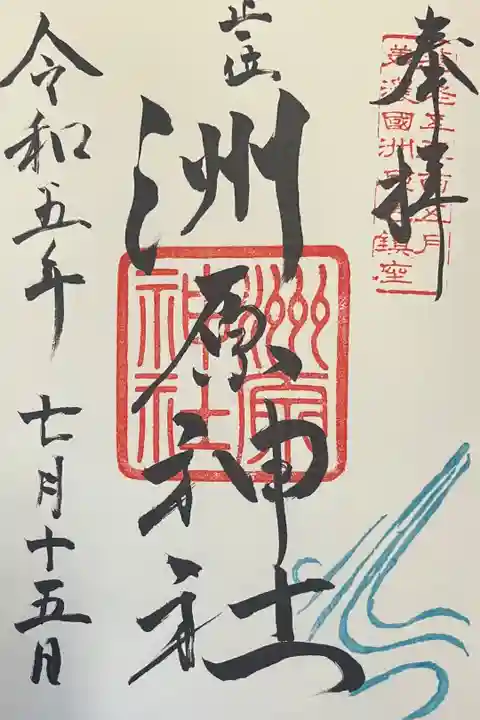 奉拝
美濃國洲原鎮座
正一位
洲原神社
洲原
神社
令和五年 七月十五日